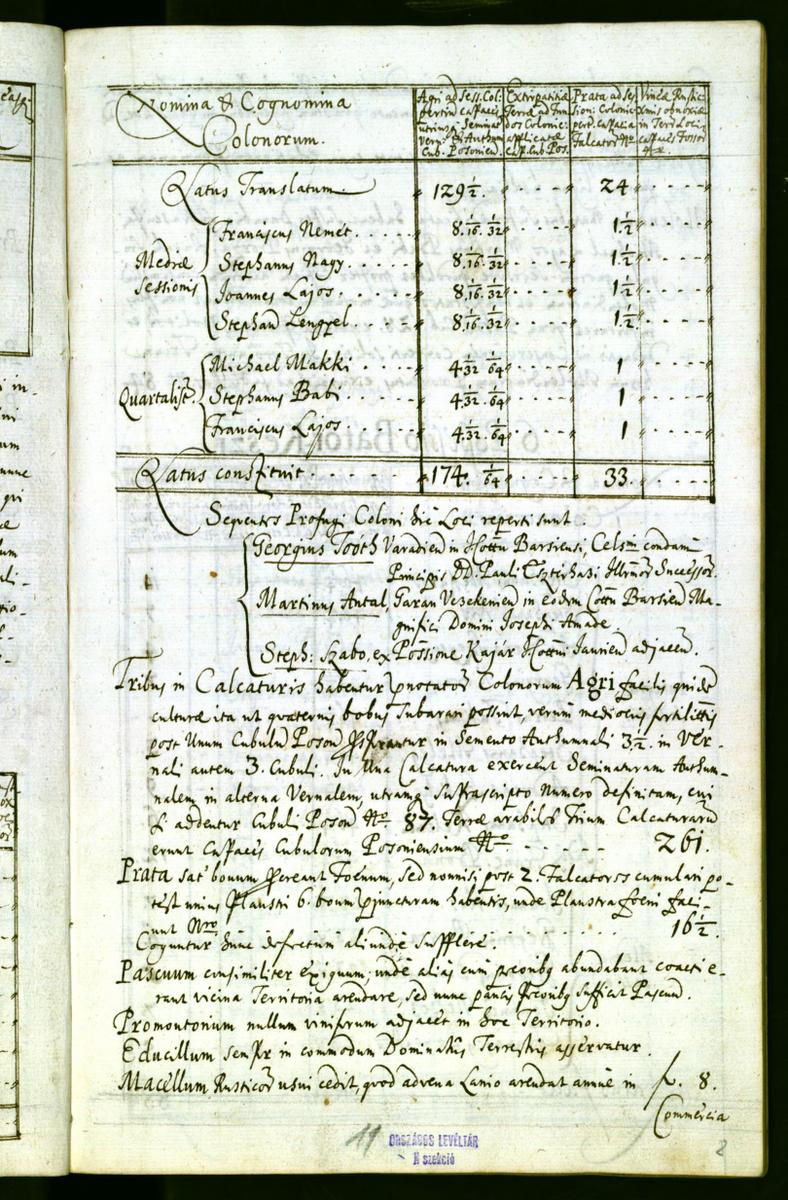 Nomina & Cognomina
Colonorum.
Agri ad Sess. Col:
Seminat
Cub. Posonien.
Extirpatitiæ
Terræ ad Fun-
dos Colonic:
applicatæ
cap. Cub Pos.
Prata ad Ses
sion: Colonic.
Falcator No
Vineæ Rustic
in Terr Loci
capaces Fossor
Latus Translatum. 129 1/2. 24
Mediæ
sessionis
Franciscus Nemet. 8. 1/16. 1/32 1. 1/2
Stephanus Nagy. 8. 1/16. 1/32 1. 1/2
Joannes Lajos. 8. 1/16. 1/32 1. 1/2
Stephan Lengyel. 8. 1/16. 1/32 1. 1/2
Quartalist.
Michael Makki 4. 1/32 1/64 1
Stephanus Babi 4. 1/32. 1/64 1
Franciscus Lajos. 4. 1/32. 1/64 1
Latus constituit 174. 1/64 33.
Sequentes Profugi Coloni hic Loci reperti sunt.
Georgius Tooth Varadien in Cottu Barsiensi, Celsmi condam
Principis DD. Pauli Eszterhazi Successor.
Martinus Antal, Garan Vezekenien in eodem Cottu Barsien Ma-
gnifici Domini Josephi Amade.
Steph: Szabo, ex Possione Kajár Cottui Jaurien adjacen.
Tribus in Calcaturis habentur pnotator Colonorum Agri facilis quidem
culturæ ita ut quaternis bobus subarari possint, verum mediocris fertilittis
post Unum Cubulum Poson in Semento Authumnali 3 1/2. in Ver-
nali autem 3. Cubuli. In Una Calcatura exercent Seminaturam Authum-
nalem, in alterna Vernalem, utramq suprascripto Numero definitam, cui
si addentur Cubuli Poson No. 87. Terræ arabiles Trium Calcaturaru
erunt capaces Cubulorum Posoniensium No. 261.
Prata sat bonum ferant Foenum, sed nonnisi post 2. Falcatores cumulari po-
test unius Plaustri 6. boum pjuncturam habentis, unde Plaustra foeni faci-
unt Nro 16 1/2.
Coguntur hunc defectum aliunde supplere.
Pascuum consimiliter exiguum, unde alias cum pecoribq abundabant coacti e-
rant vicina Territoria arendare, sed nunc paucis pecoribq sufficit Pascuu.
Promontorium nullum viniferum adjacet in hoc Territorio.
Educillum semper in commodum Dominatus Terrestris asservatur.
Macellum Rusticor usui cedit, quod advena Lanio arendat annue in f. 8.
Commercia
11
ORSZÁGOS LEVÉLTÁR
N szekció
2